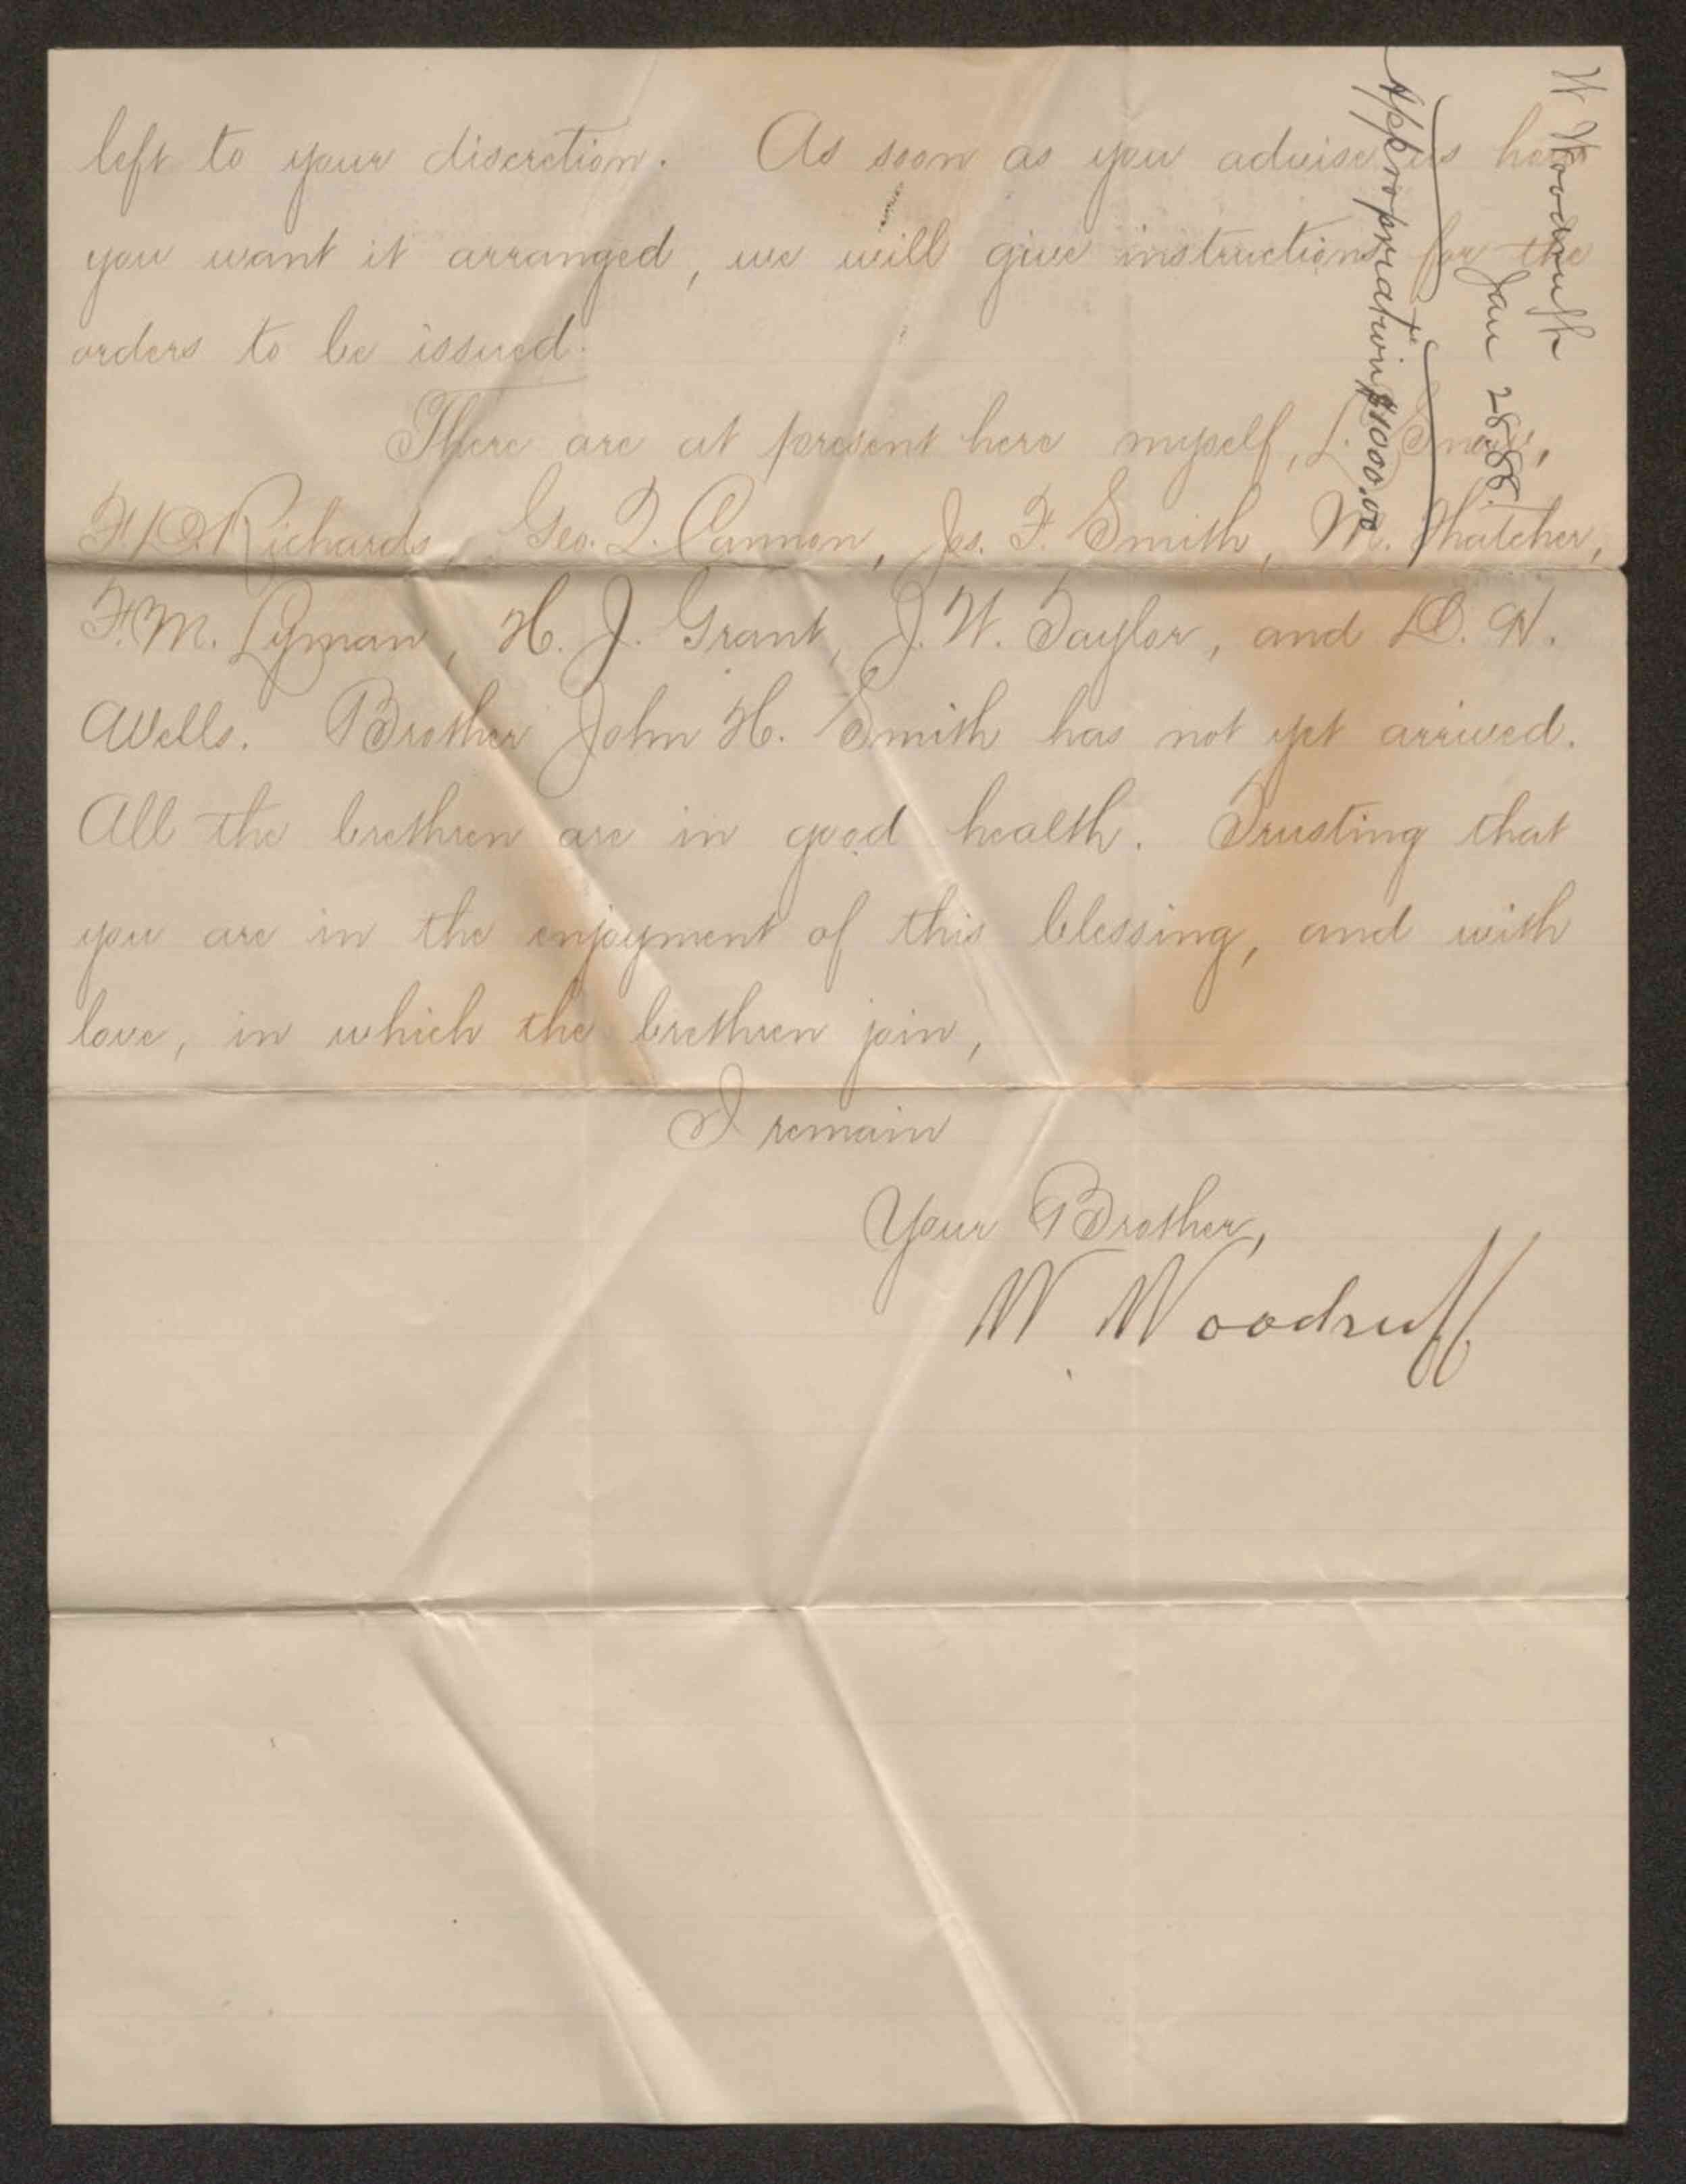 left to your discretion. As soon as you advise us how
you want it arranged, we will give instructions for the
orders to be issued.
There are at present here myself, L. Snow,
F. D. Richards, Geo. Q. Cannon, Jos. F. Smith, M. Thatcher,
F. M. Lyman, H. J. Grant, J. W. Taylor, and D. H.
Wells. Brother John H. Smith has not yet arrived.
All the brethren are in good health. Trusting that
you are in the enjoyment of this blessing, and with
love, in which the brethren join,
I remain
Your Brother,
W. Woodruff
W Woodruff
Jan 28. 88.
Appropriation $1000.00